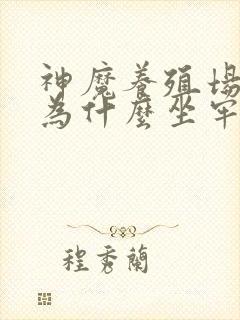 神魔養殖場
為什麼坐牢
程秀蘭